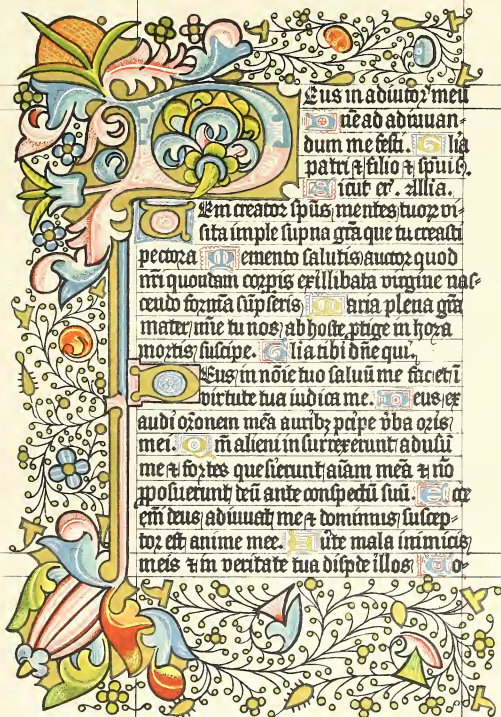 Deus in adiutor̄ meū
Dn̄e ad adiuuan-
dum me festi. Glia
patri ⁊ filio ⁊ spūi s.
Sicut er̄. Allia.
Uem creator spūs mentes tuoꝝ vi-
sita imple supna grā que tu creasti
pectora Memento salutis auctor quod
nr̄i quondam corpis ex illibata virgine nas-
cendo formā sūpseris Maria plena grā
mater mīe tu nos ab hoste ꝓtige in hora
mortis suscipe. Glia tibi dn̄e qui.
Deus in nōie tuo saluū me fac et ī
virtute tua iudica me. Deus ex
audi orōnem meā auribꝫ pcipe v̄ba oris
mei. Qm̄ alieni insurrexerunt adusū
me ⁊ fortes quesierunt aīam meā ⁊ nō
ꝓposuerunt deū ante conspectū suū. Ecce
em̄ deus adiuuat me ⁊ dominus suscep-
tor est anime mee. Auẽte mala inimicis
meis ⁊ in veritate tua dispde illos Uo-